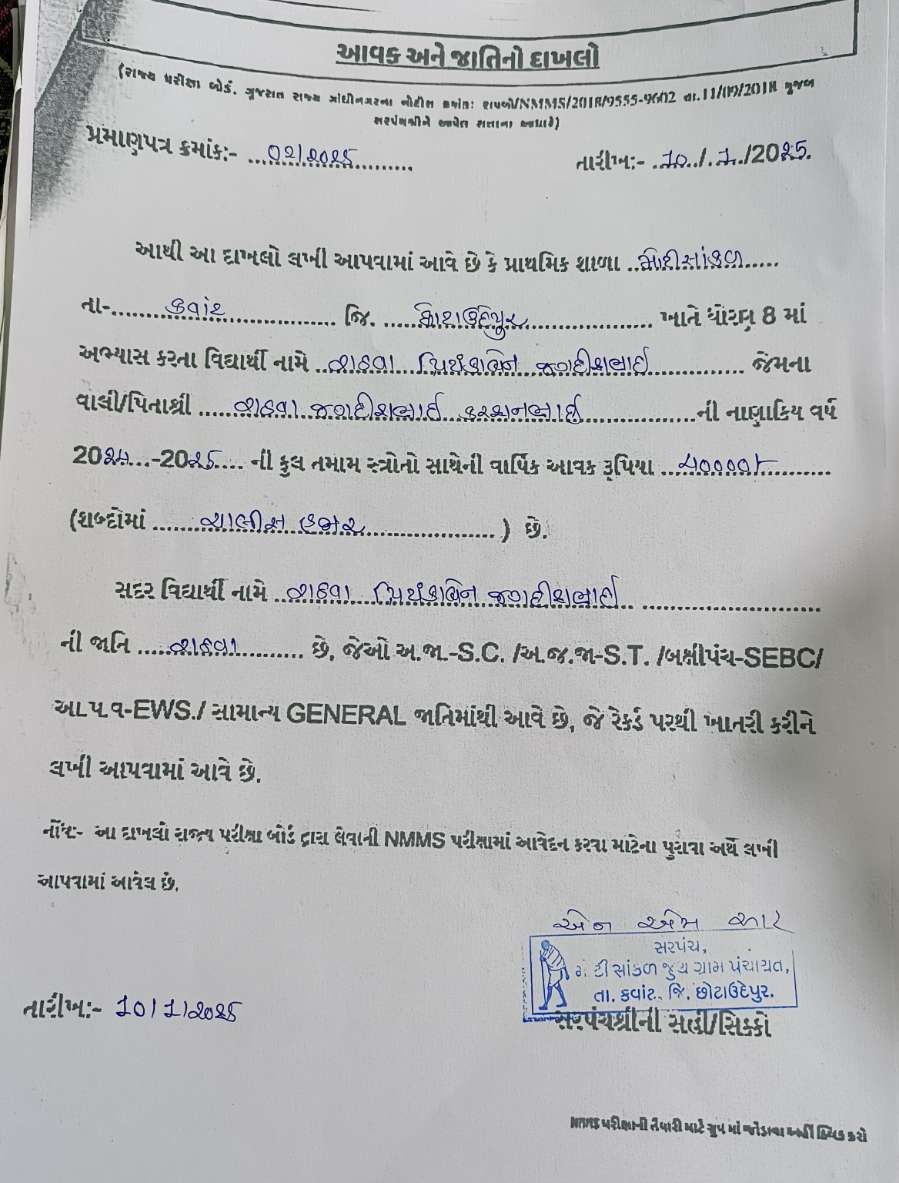 આવક અને જાતિનો દાખલો
(રાજ્ય પરીક્ષા બોર્ડ, ગુજરાત રાજ્ય ગાંધીનગરના નોટીસ ક્રમાંક: રાપબો/NMMS/2018/9555-9602 તા.11/09/2018 મુજબ
સરપંચશ્રીને આપેલ સત્તાના આધારે)
પ્રમાણપત્ર ક્રમાંક:- ...02/2025............ તારીખ:- .10../.1../2025.
આથી આ દાખલો લખી આપવામાં આવે છે કે પ્રાથમિક શાળા ..મોટીસાંકળ.....
તા-.......કવાંટ.................. જિ. .....છોટાઉદેપુર.................. ખાતે ધોરણ 8 માં
અભ્યાસ કરતા વિદ્યાર્થી નામે ..રાઠવા.... જગદીશભાઈ.............. જેમના
વાલી/પિતાશ્રી .....રાઠવા જગદીશભાઈ કરશનભાઈ................ની નાણાકિય વર્ષ
2024...-2025.... ની કુલ તમામ સ્ત્રોતો સાથેની વાર્ષિક આવક રૂપિયા ...40000/-..........
(શબ્દોમાં .......ચાલીસ હજાર...................) છે.
સદર વિદ્યાર્થી નામે ..રાઠવા. જગદીશભાઈ .........................
ની જાતિ .....રાઠવા.......... છે, જેઓ અ.જા.-S.C. /અ.જ.જા-S.T. /બક્ષીપંચ-SEBC/
આ.પ.વ-EWS./ સામાન્ય GENERAL જાતિમાંથી આવે છે, જે રેકર્ડ પરથી ખાતરી કરીને
લખી આપવામાં આવે છે.
નોંધ:- આ દાખલો રાજ્ય પરીક્ષા બોર્ડ દ્વારા લેવાની NMMS પરીક્ષામાં આવેદન કરવા માટેના પુરાવા અર્થે લખી
આપવામાં આવેલ છે.
એન એમ આર
સરપંચ,
મોટીસાંકળ જુથ ગ્રામ પંચાયત,
તા. કવાંટ, જિ. છોટાઉદેપુર.
તારીખ:- 10/1/2025
સરપંચશ્રીની સહી/સિક્કો
NMMS પરીક્ષાની તૈયારી માટે ગ્રુપ માં જોડાવા અહીં ક્લિક કરો